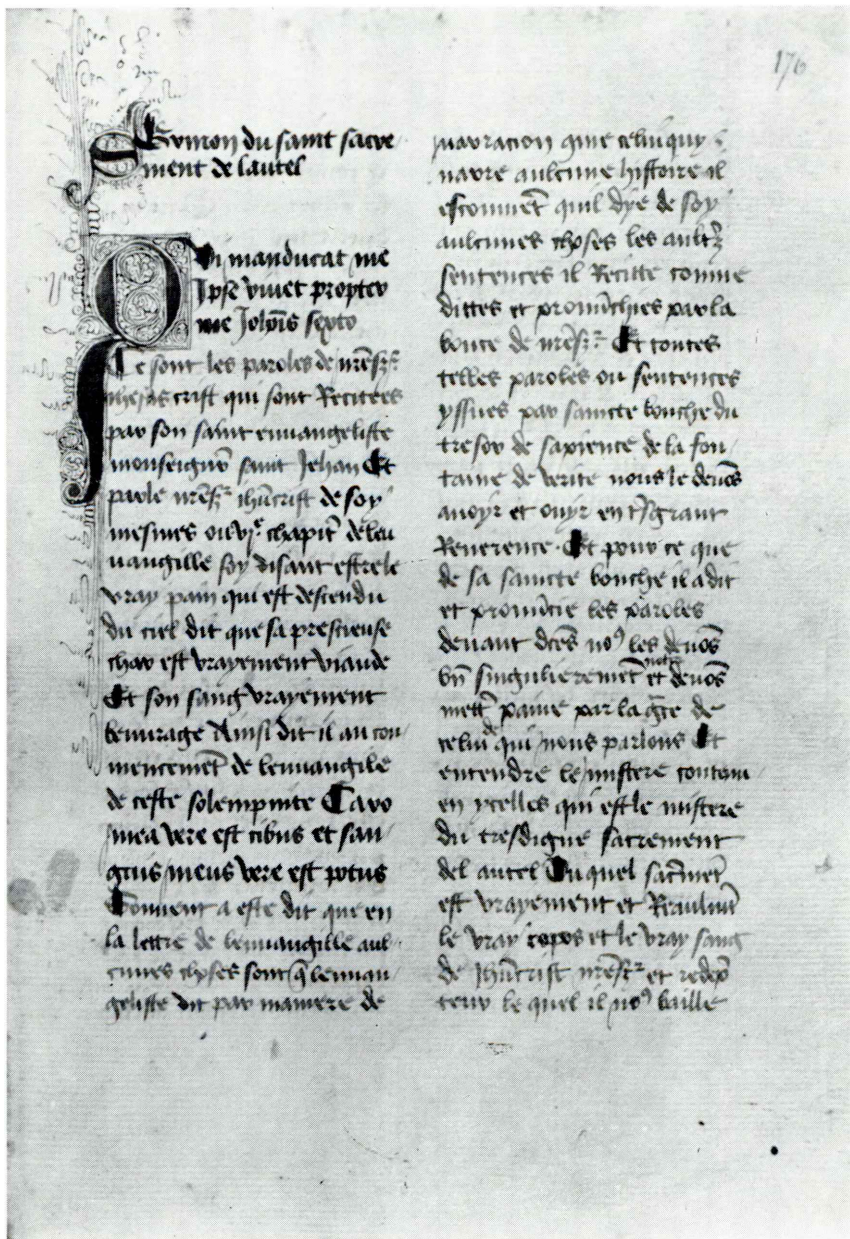 176
Sermon du saint sacre
ment de lautel
Qui manducat me
Ipse viuet propter
me Joh̄is sexto
Ce sont les paroles de
crist qui sont Recitees
par son saint euuangeliste
monseigneur saint Jehan Et
parle ih̄ucrist de soy
mesmes ou vjᵉ chapit̄ de leu
uangille soy disant estre le
vray pain qui est descendu
du ciel dit que sa prescieuse
char est vrayement viande
Et son sang vrayement
beuurage Ainsi dit il au com
mencemēt de leuuangile
de ceste solempnite Caro
mea vere est cibus et san
guis meus vere est potus
Souuent a este dit que en
la lettre de leuuangille aul
cunes choses sont q̄ leuuan
geliste dit par maniere de
narracion que celuy quy
narre aulcune histoire il
esconuiēt quil dye de soy
aulcunes choses les aultr̄
sentences il Recitte comme
dittes et pronūchies par la
bouce de Et toutes
telles paroles ou sentences
yssues par saincte bouche du
tresor de sapience de la fon
taine de verite nous le deuōs
auoyr et ouyr en grant
Reuerence Et pour ce que
de sa saincte bouche il a dit
et pronūcie les paroles
deuant dc̄es noꝰ les deuōs
singulieremēt et deuōs
mett̄ paine par la gr̄ce de
celui de qui nous parlons Et
entendre le mistere contenu
en ycelles qui est le mistere
du tresdigne sacrement
del autel Ou quel sacr̄mēt
est vrayement et
le vray corps et le vray sang
de Jh̄ucrist et redēp
teur le quel il noꝰ baille